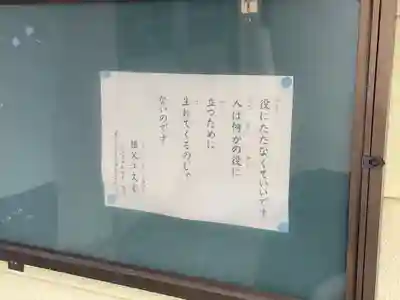 役にたたなくていいです
人は何かの役に
立つために
生れてくるのじゃ
ないのです